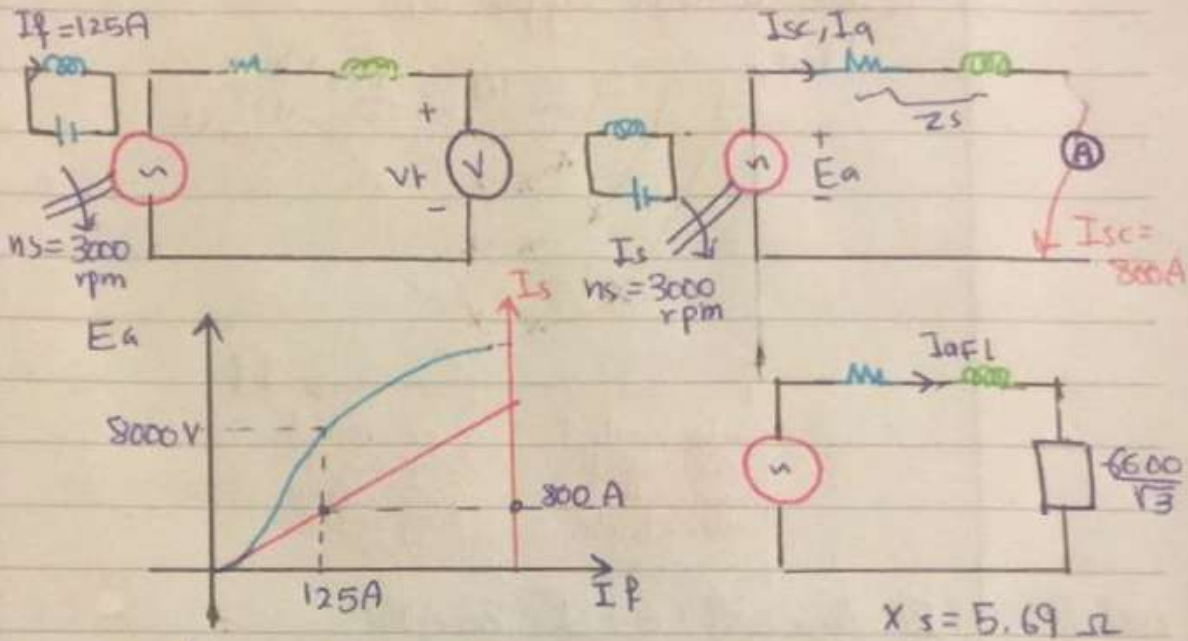 If = 125A
Vt
+
-
V
ns = 3000
rpm
Isc, Ia
Zs
+
Ea
-
A
Isc =
800A
Is
ns = 3000
rpm
Ea
Is
8000V
800 A
125A
If
IaFl
6600
√3
Xs = 5.69 Ω